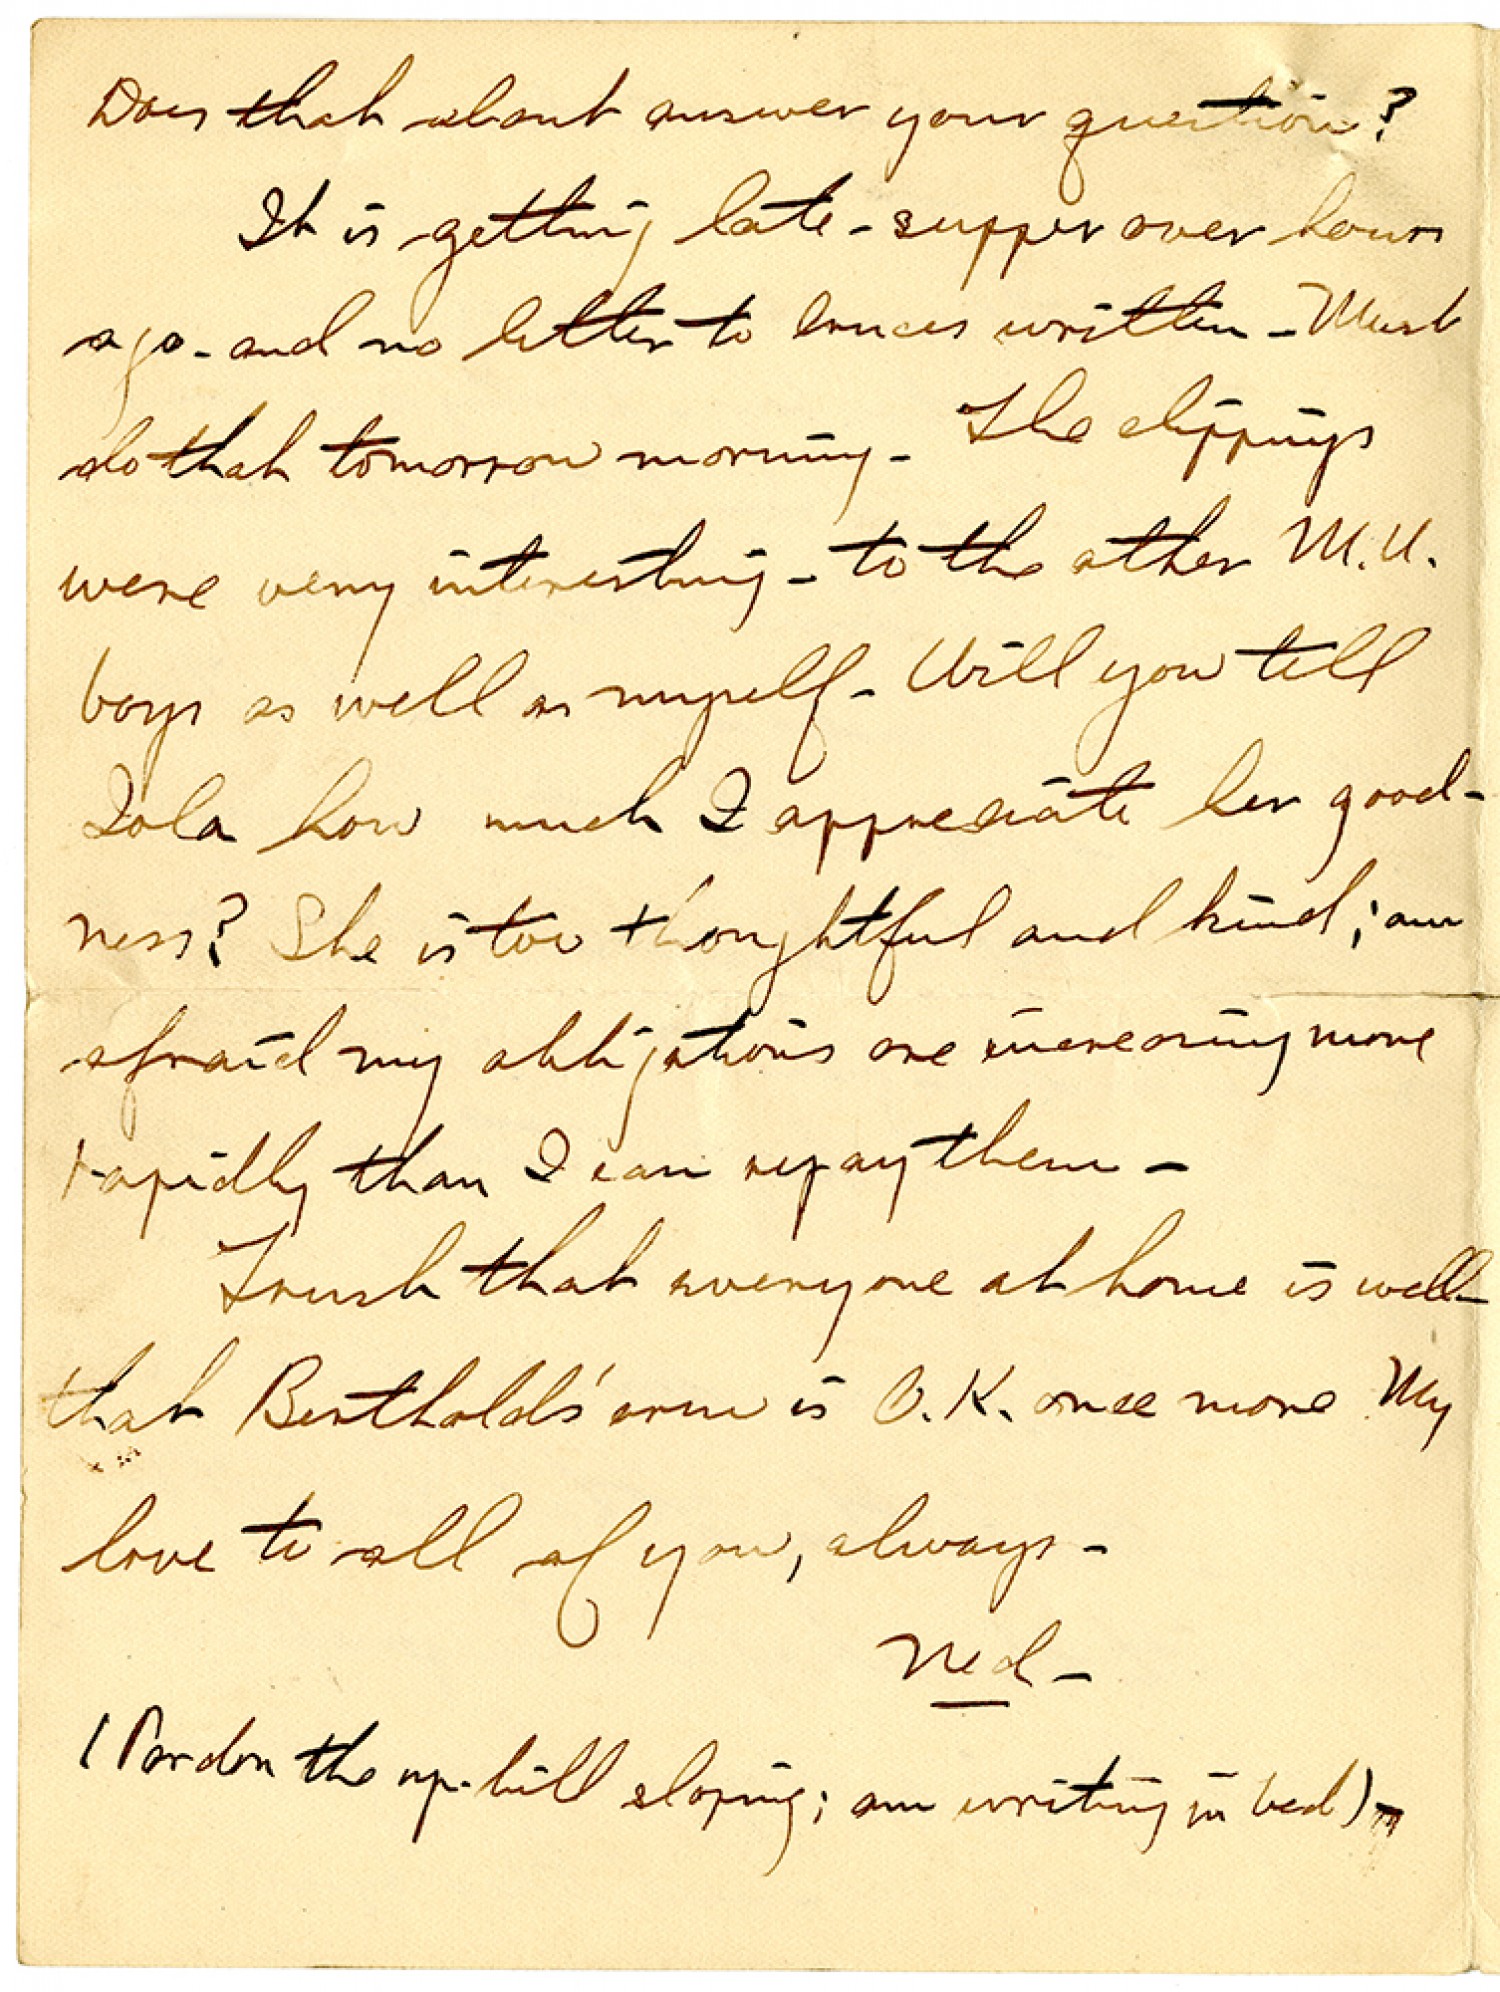 Does that about answer your question?
It is getting late - supper over hours
ago - and no letter to written - Must
do that tomorrow morning - The clippings
were very interesting - to the other M.U.
boys as well as myself - Will you tell
Iola how much I appreciate her good-
ness? She is too thoughtful and kind; am
afraid my obligations are increasing more
rapidly than I can repay them -
Trust that everyone at home is well -
that Berthold's arm is O.K. once more My
love to all of you, always -
Ned -
(Pardon the up-hill sloping; am writing in bed) -